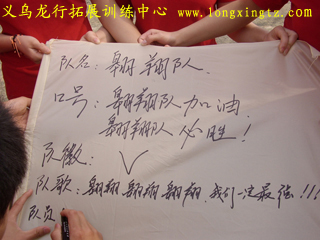 义乌龙行拓展训练中心 www.longxingtz.com
队名:翱翔队.
口号:翱翔队加油.
翱翔队必胜!
队徽:V
队歌:翱翔翱翔翱翔,我们一定最强!!!
队员